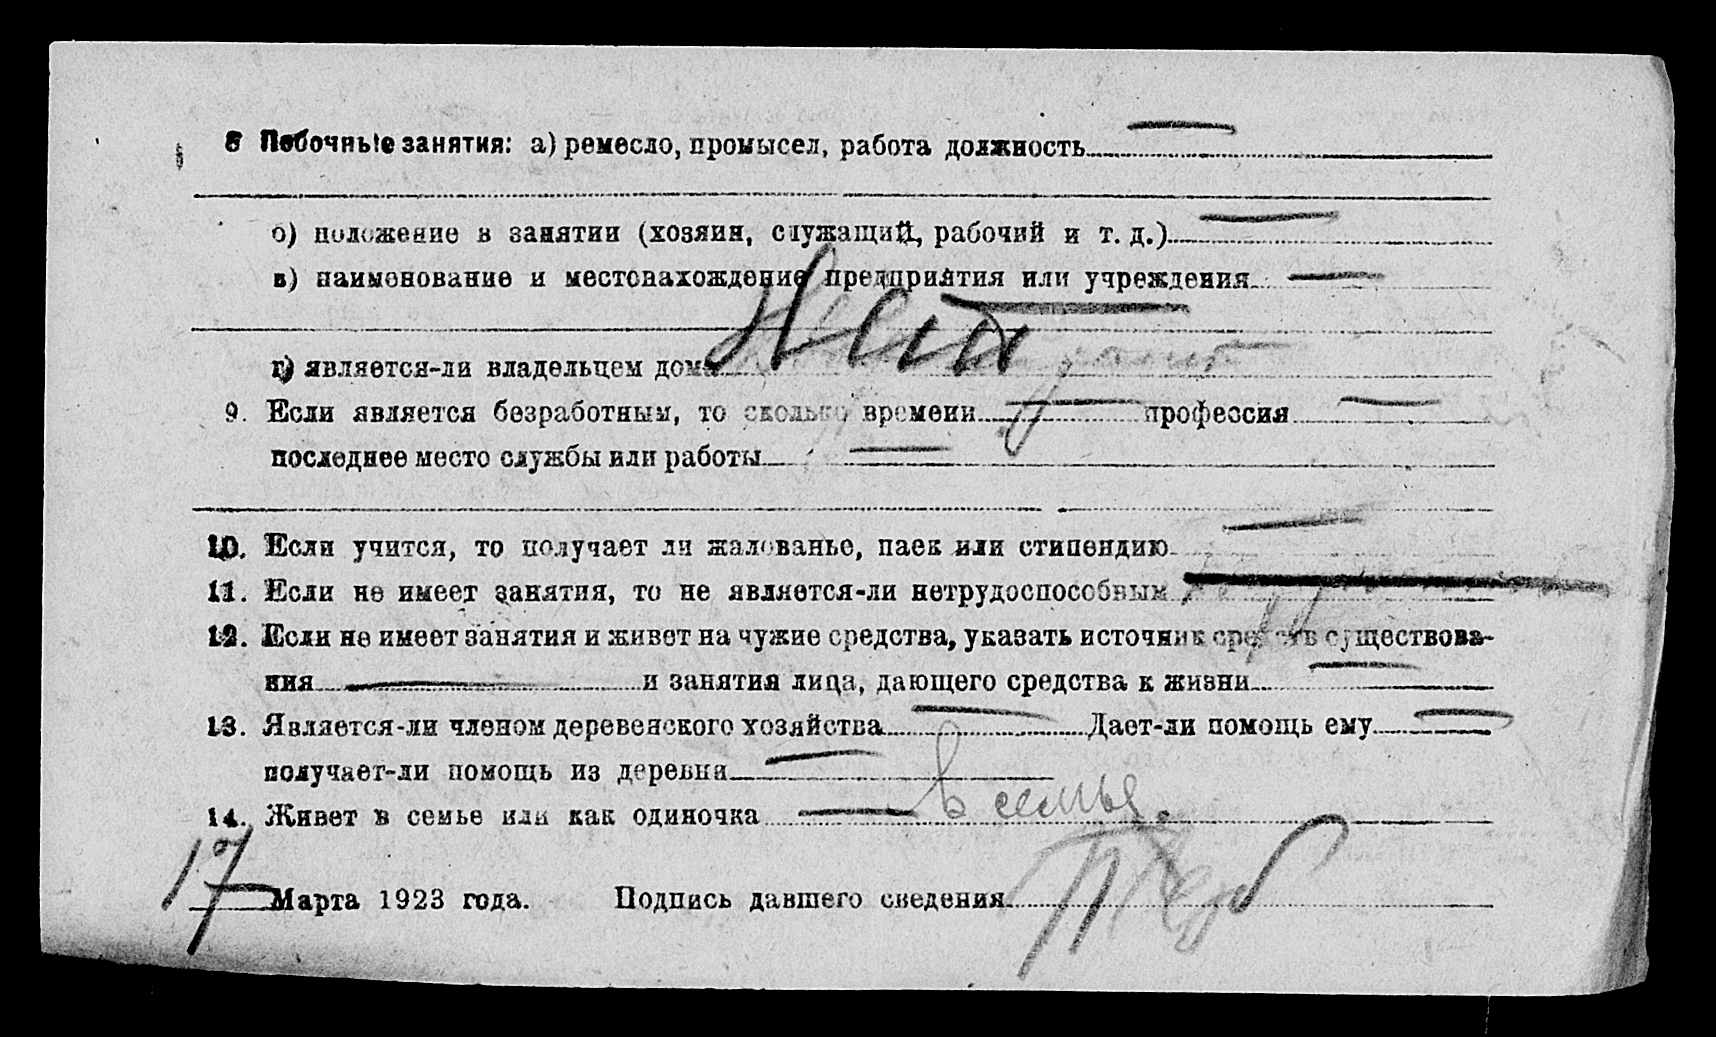 8 Побочные занятия: а) ремесло, промысел, работа должность —
б) положение в занятии (хозяин, служащий, рабочий и т. д.) —
в) наименование и местонахождение предприятия или учреждения —
г) является-ли владельцем дома Нет
9. Если является безработным, то сколько времени — профессия —
последнее место службы или работы —
10. Если учится, то получает ли жалованье, паек или стипендию —
11. Если не имеет занятия, то не является-ли нетрудоспособным —
12. Если не имеет занятия и живет на чужие средства, указать источник средств существова-
ния — и занятия лица, дающего средства к жизни —
13. Является-ли членом деревенского хозяйства — Дает-ли помощь ему —
получает-ли помощь из деревни —
14. Живет в семье или как одиночка — в семье.
17 Марта 1923 года. Подпись давшего сведения